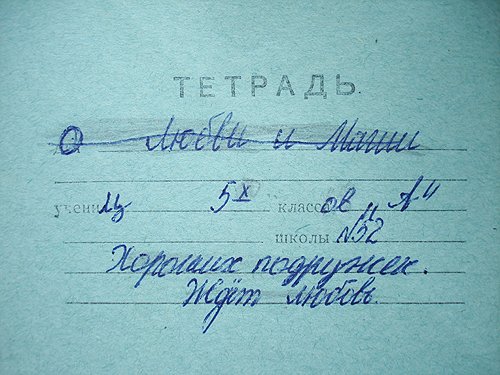 ТЕТРАДЬ
О Любви и Маши
учениц 5х классов „А"
школы №52
Хороших подружек.
Ждёт любовь.